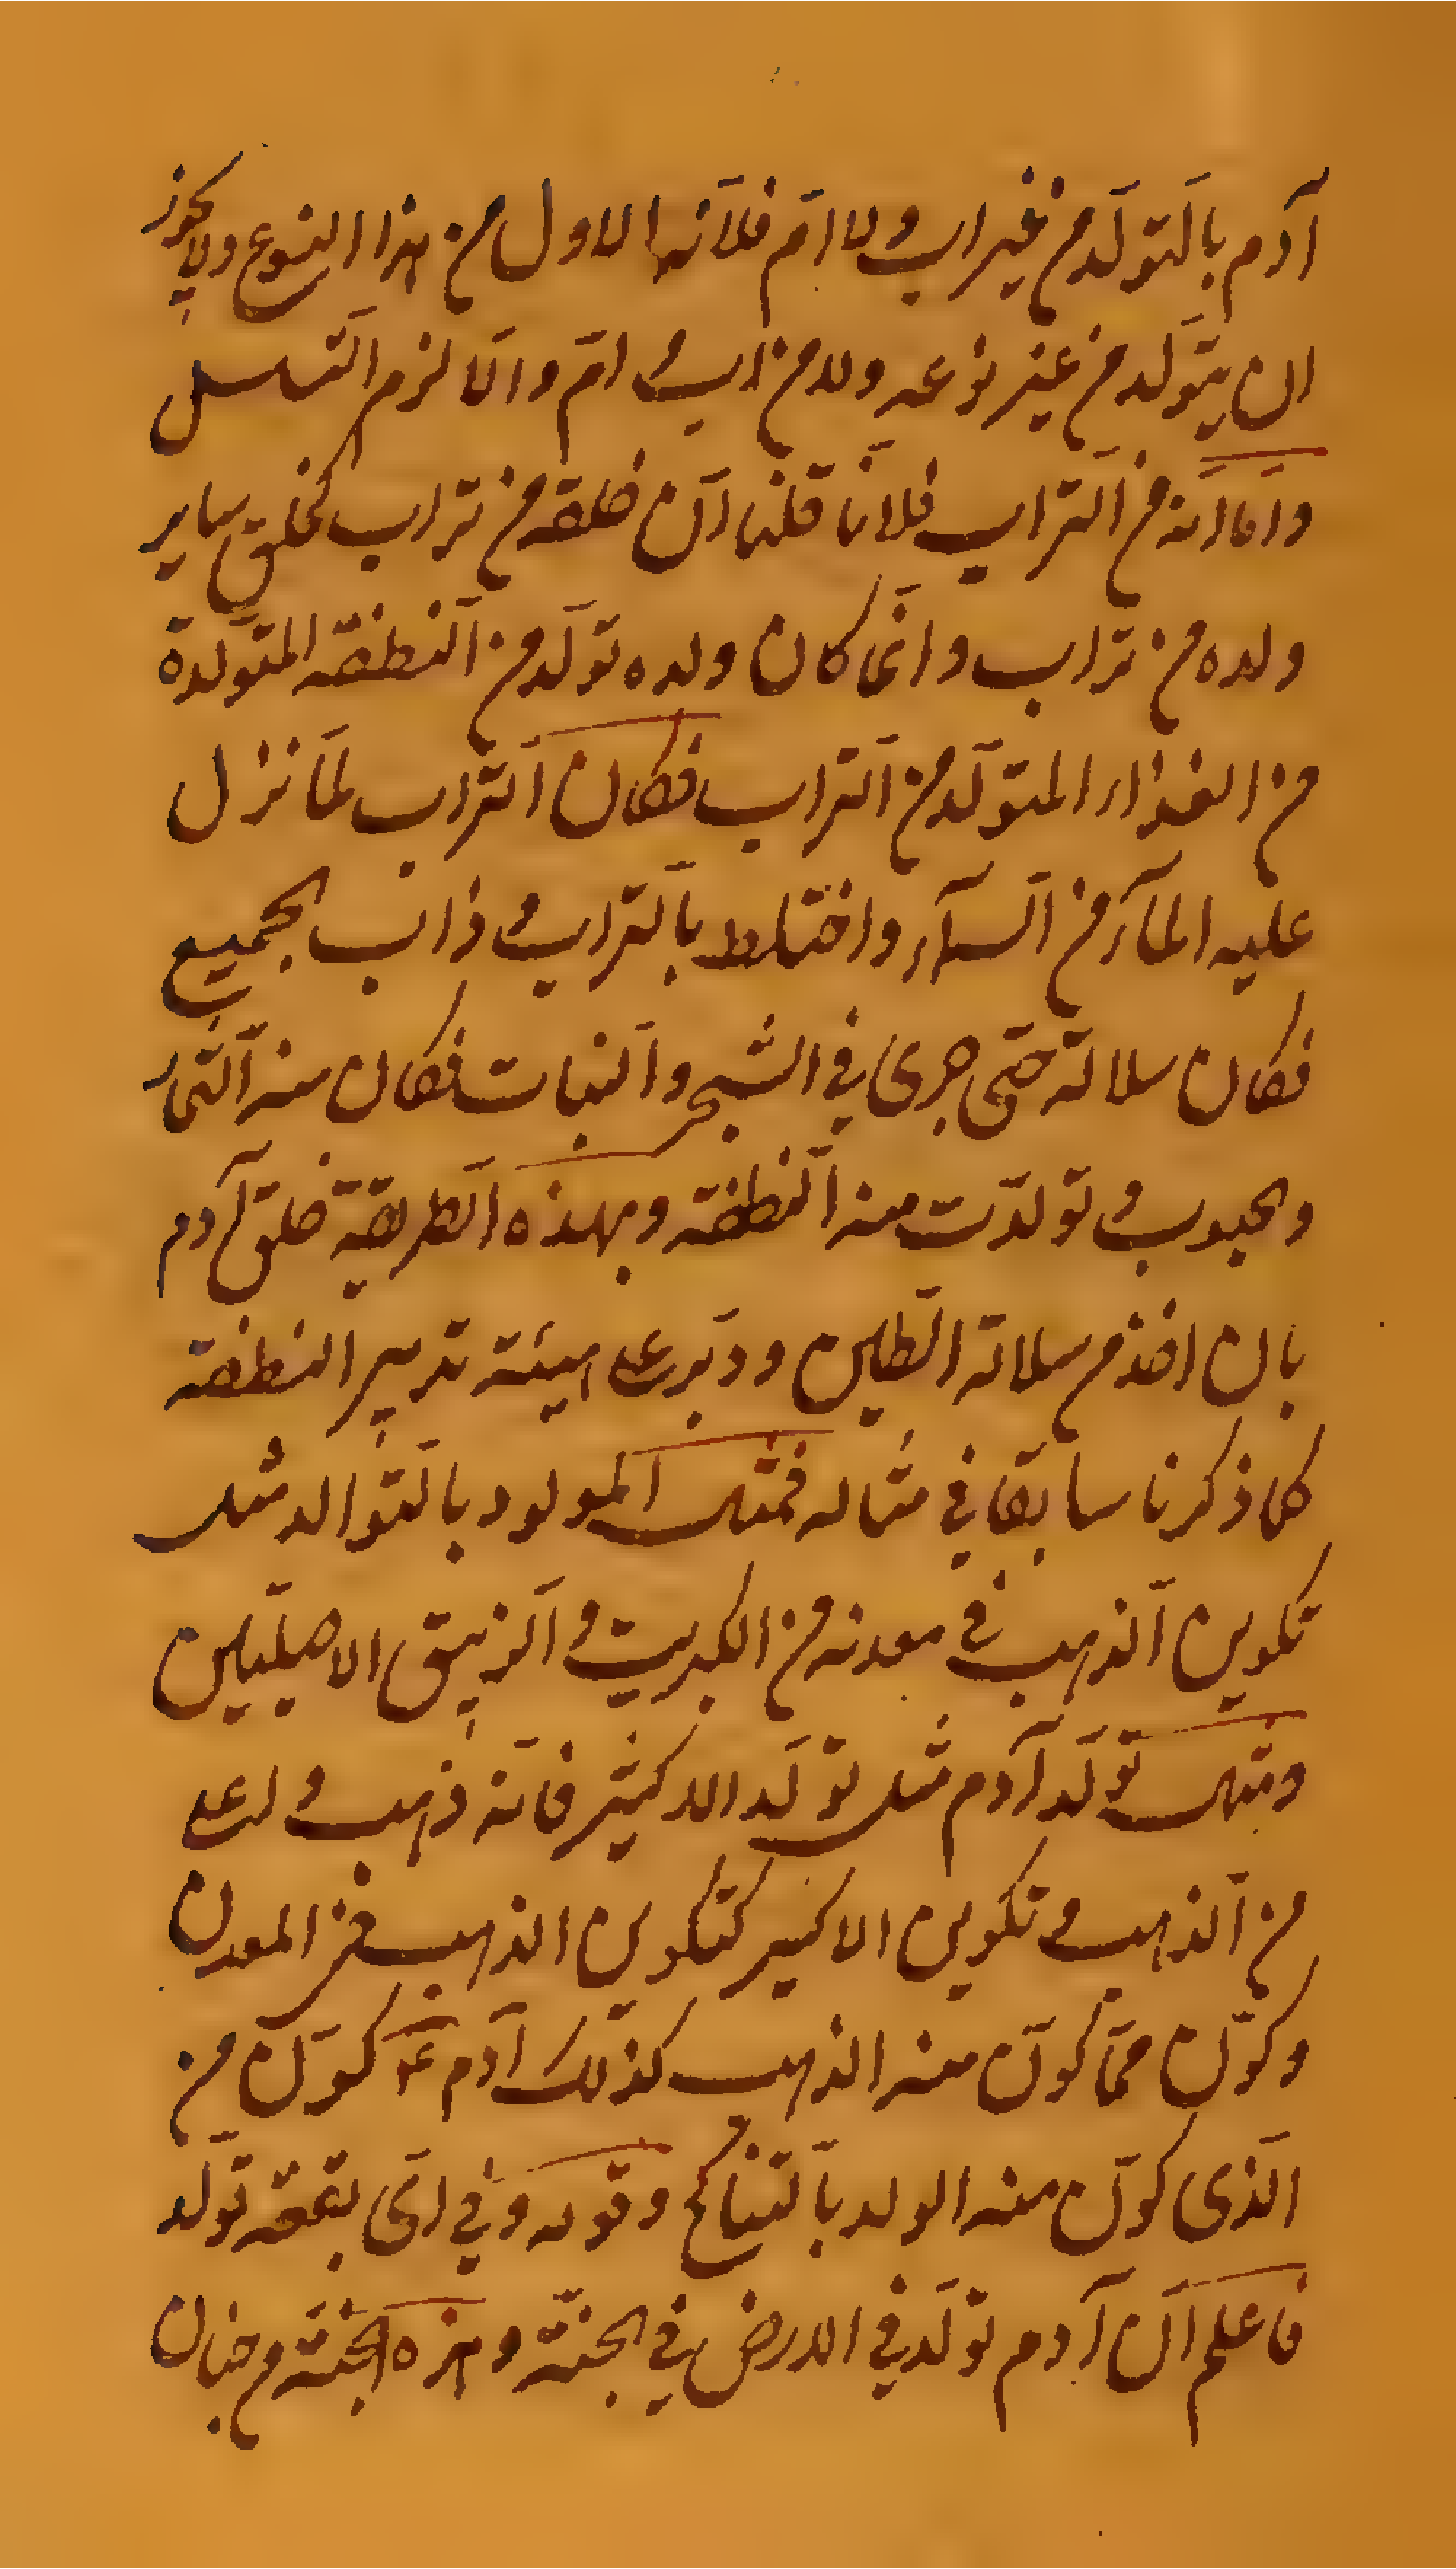 آدم بالتّولّد من غير اب ولا امّ فلانّه الاول من هذا النوع ولا يجوز
ان يتولّد من غير نوعه ولا من اب و امّ والّا لزم التسلسل
وامّا انّه من التّراب فلانّا قلنا انّ خلقه من تراب كخلق ساير
ولده من تراب وانّما كان ولده تولّد من النّطفة المتولّدة
من الغذاء المتولّد من التّراب فكان التّراب لمّا نزل
عليه المآء من السمآء واختلط بالتّراب و ذاب الجميع
فكان سلالة حتّى جرى في الشّجر والنّبات فكان منه الثّمار
والحبوب و تولّدت منه النّطفة وبهذه الطّريقة خلق آدم
بان اخذ من سلالة الطّين ودبّر على هيئة تدبير النطفة
كما ذكرنا سابقا في مثاله فمثل المولود بالتّوالد مثل
تكوين الذهب في معدنه من الكبريت و الزّيبق الاصيليين
ومثل تولّد آدم مثل تولّد الاكثير فانّه ذهب و اعلى
من الذهب و تكوين الاكسير كتكوين الذهب في المعدن
وكوّن ممّا كوّن منه الذهب كذلك آدم ع كوّن من
الّذى كوّن منه الولد بالتّناكح وقوله وفي اىّ بقعة تولّد
فاعلم انّ آدم تولّد في الارض في الجنّة وهذه الجنّة من جنان